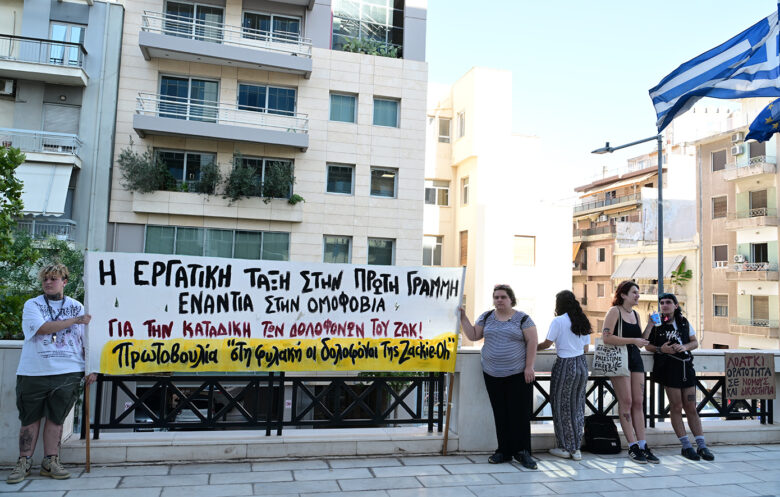 Η ΕΡΓΑΤΙΚΗ ΤΑΞΗ ΣΤΗΝ ΠΡΩΤΗ ΓΡΑΜΜΗ
ΕΝΑΝΤΙΑ ΣΤΗΝ ΟΜΟΦΟΒΙΑ
ΓΙΑ ΤΗΝ ΚΑΤΑΔΙΚΗ ΤΩΝ ΔΟΛΟΦΟΝΩΝ ΤΟΥ ΖΑΚ!
Πρωτοβουλία "στη φυλακή οι δολοφόνοι της Zackie Oh"
ΛΟΑΤΚΙ
ΟΡΑΤΟΤΗΤΑ
ΣΕ ΝΟΜΟΥΣ
ΚΑΙ ΔΙΚΑΣΤΗΡΙΑ